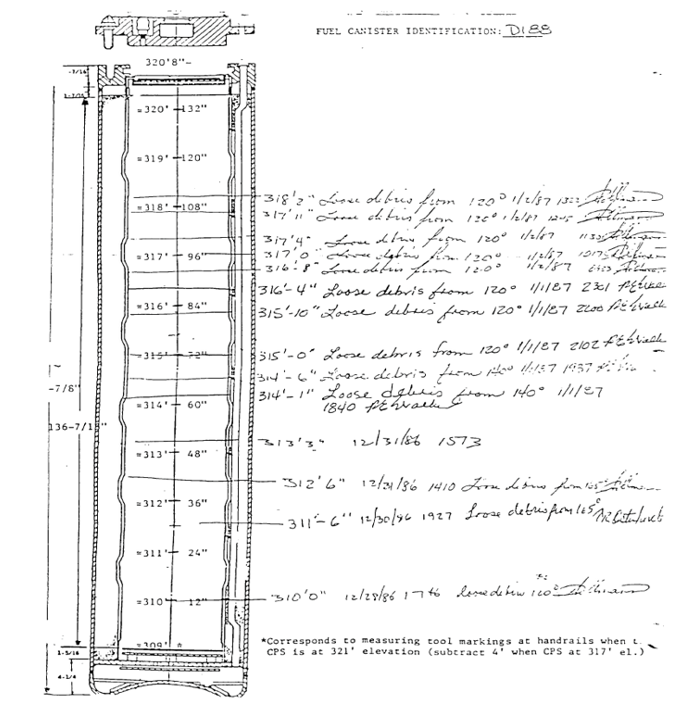 FUEL CANISTER IDENTIFICATION: D188
320'8"-
-7/16
=320' 132"
=319' 120"
318'2" Loose debris from 120° 1/2/87
=318' 108"
317'11" Loose debris from 120° 1/2/87
317'4" Loose debris from 120° 1/2/87
=317' 96"
317'0" Loose debris from 120° 1/2/87
316'8" Loose debris from 120° 1/2/87
316'-4" Loose debris from 120° 1/1/87 2301
=316' 84"
315'-10" Loose debris from 120° 1/1/87 2200
=315' 72"
315'-0" Loose debris from 120° 1/1/87 2102
314'-6" Loose debris from 140° 1/1/87 1957
-7/8"
314'-1" Loose debris from 140° 1/1/87
=314' 60"
1840
136-7/1 "
313'3" 12/31/86 1573
=313' 48"
312'6" 12/31/86 1410 Loose debris from 165°
=312' 36"
311'-6" 12/30/86 1927 Loose debris from 165°
=311' 24"
310'0" 12/28/86 1746 loose debris 120°
=310' 12"
=309' 0
*Corresponds to measuring tool markings at handrails when t
CPS is at 321' elevation (subtract 4' when CPS at 317' el.)
1-5/16
4-1/4